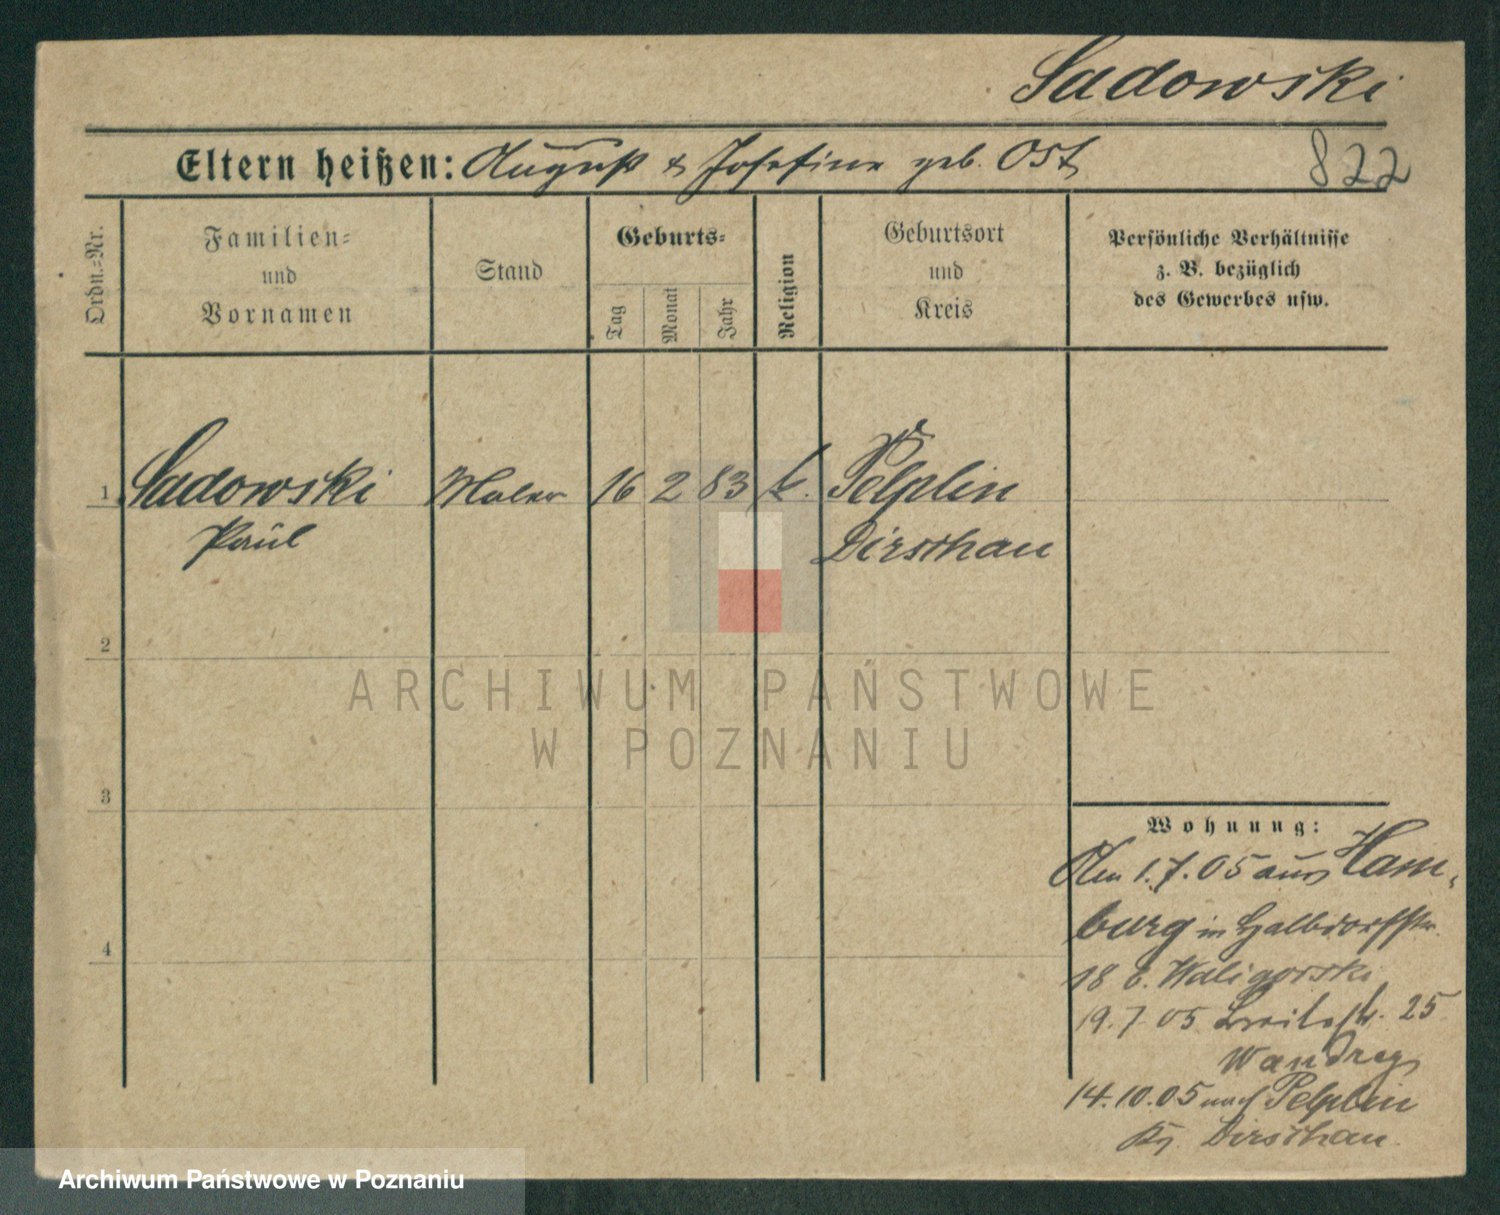 Sadowski
Eltern heißen: August & Josefine geb. Ost
822
Ordn.-Nr.
Familien- und Vornamen
Stand
Geburts-
Tag
Monat
Jahr
Religion
Geburtsort und Kreis
Persönliche Verhältnisse
z. B. bezüglich
des Gewerbes usw.
1 Sadowski Maler 16 2 83 k. Pelplin
Paul Dirschau
2
3
4
Wohnung:
Am 1.7.05 aus Ham-
burg in Halbdorfstr.
18 b. Waligorski
19.7.05 Breitestr. 25
14.10.05 nach Pelplin
Kr. Dirschau
ARCHIWUM PAŃSTWOWE
W POZNANIU
Archiwum Państwowe w Poznaniu